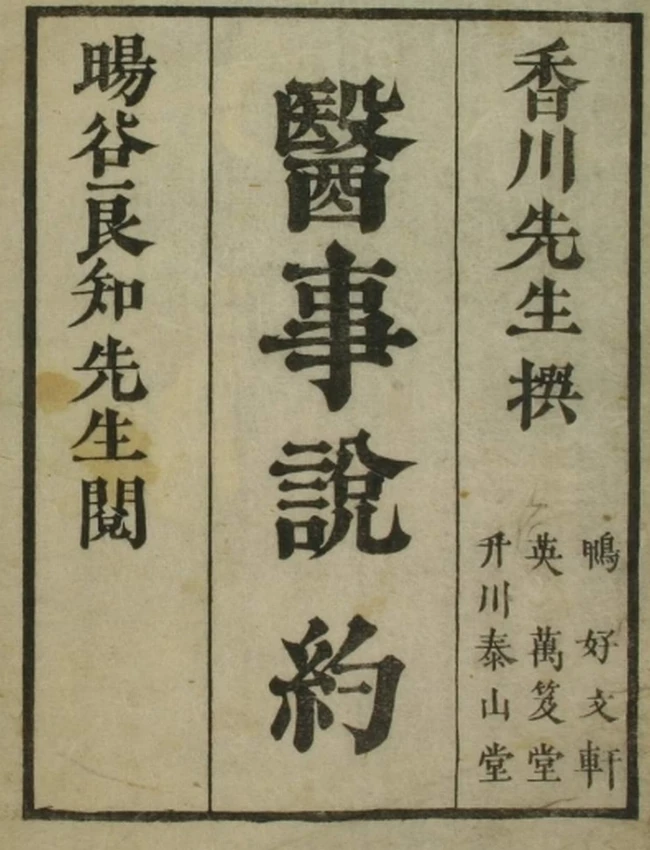 香川先生撰
鴨好文軒
英萬笈堂
升川泰山堂
醫事說約
暘谷良知先生閱